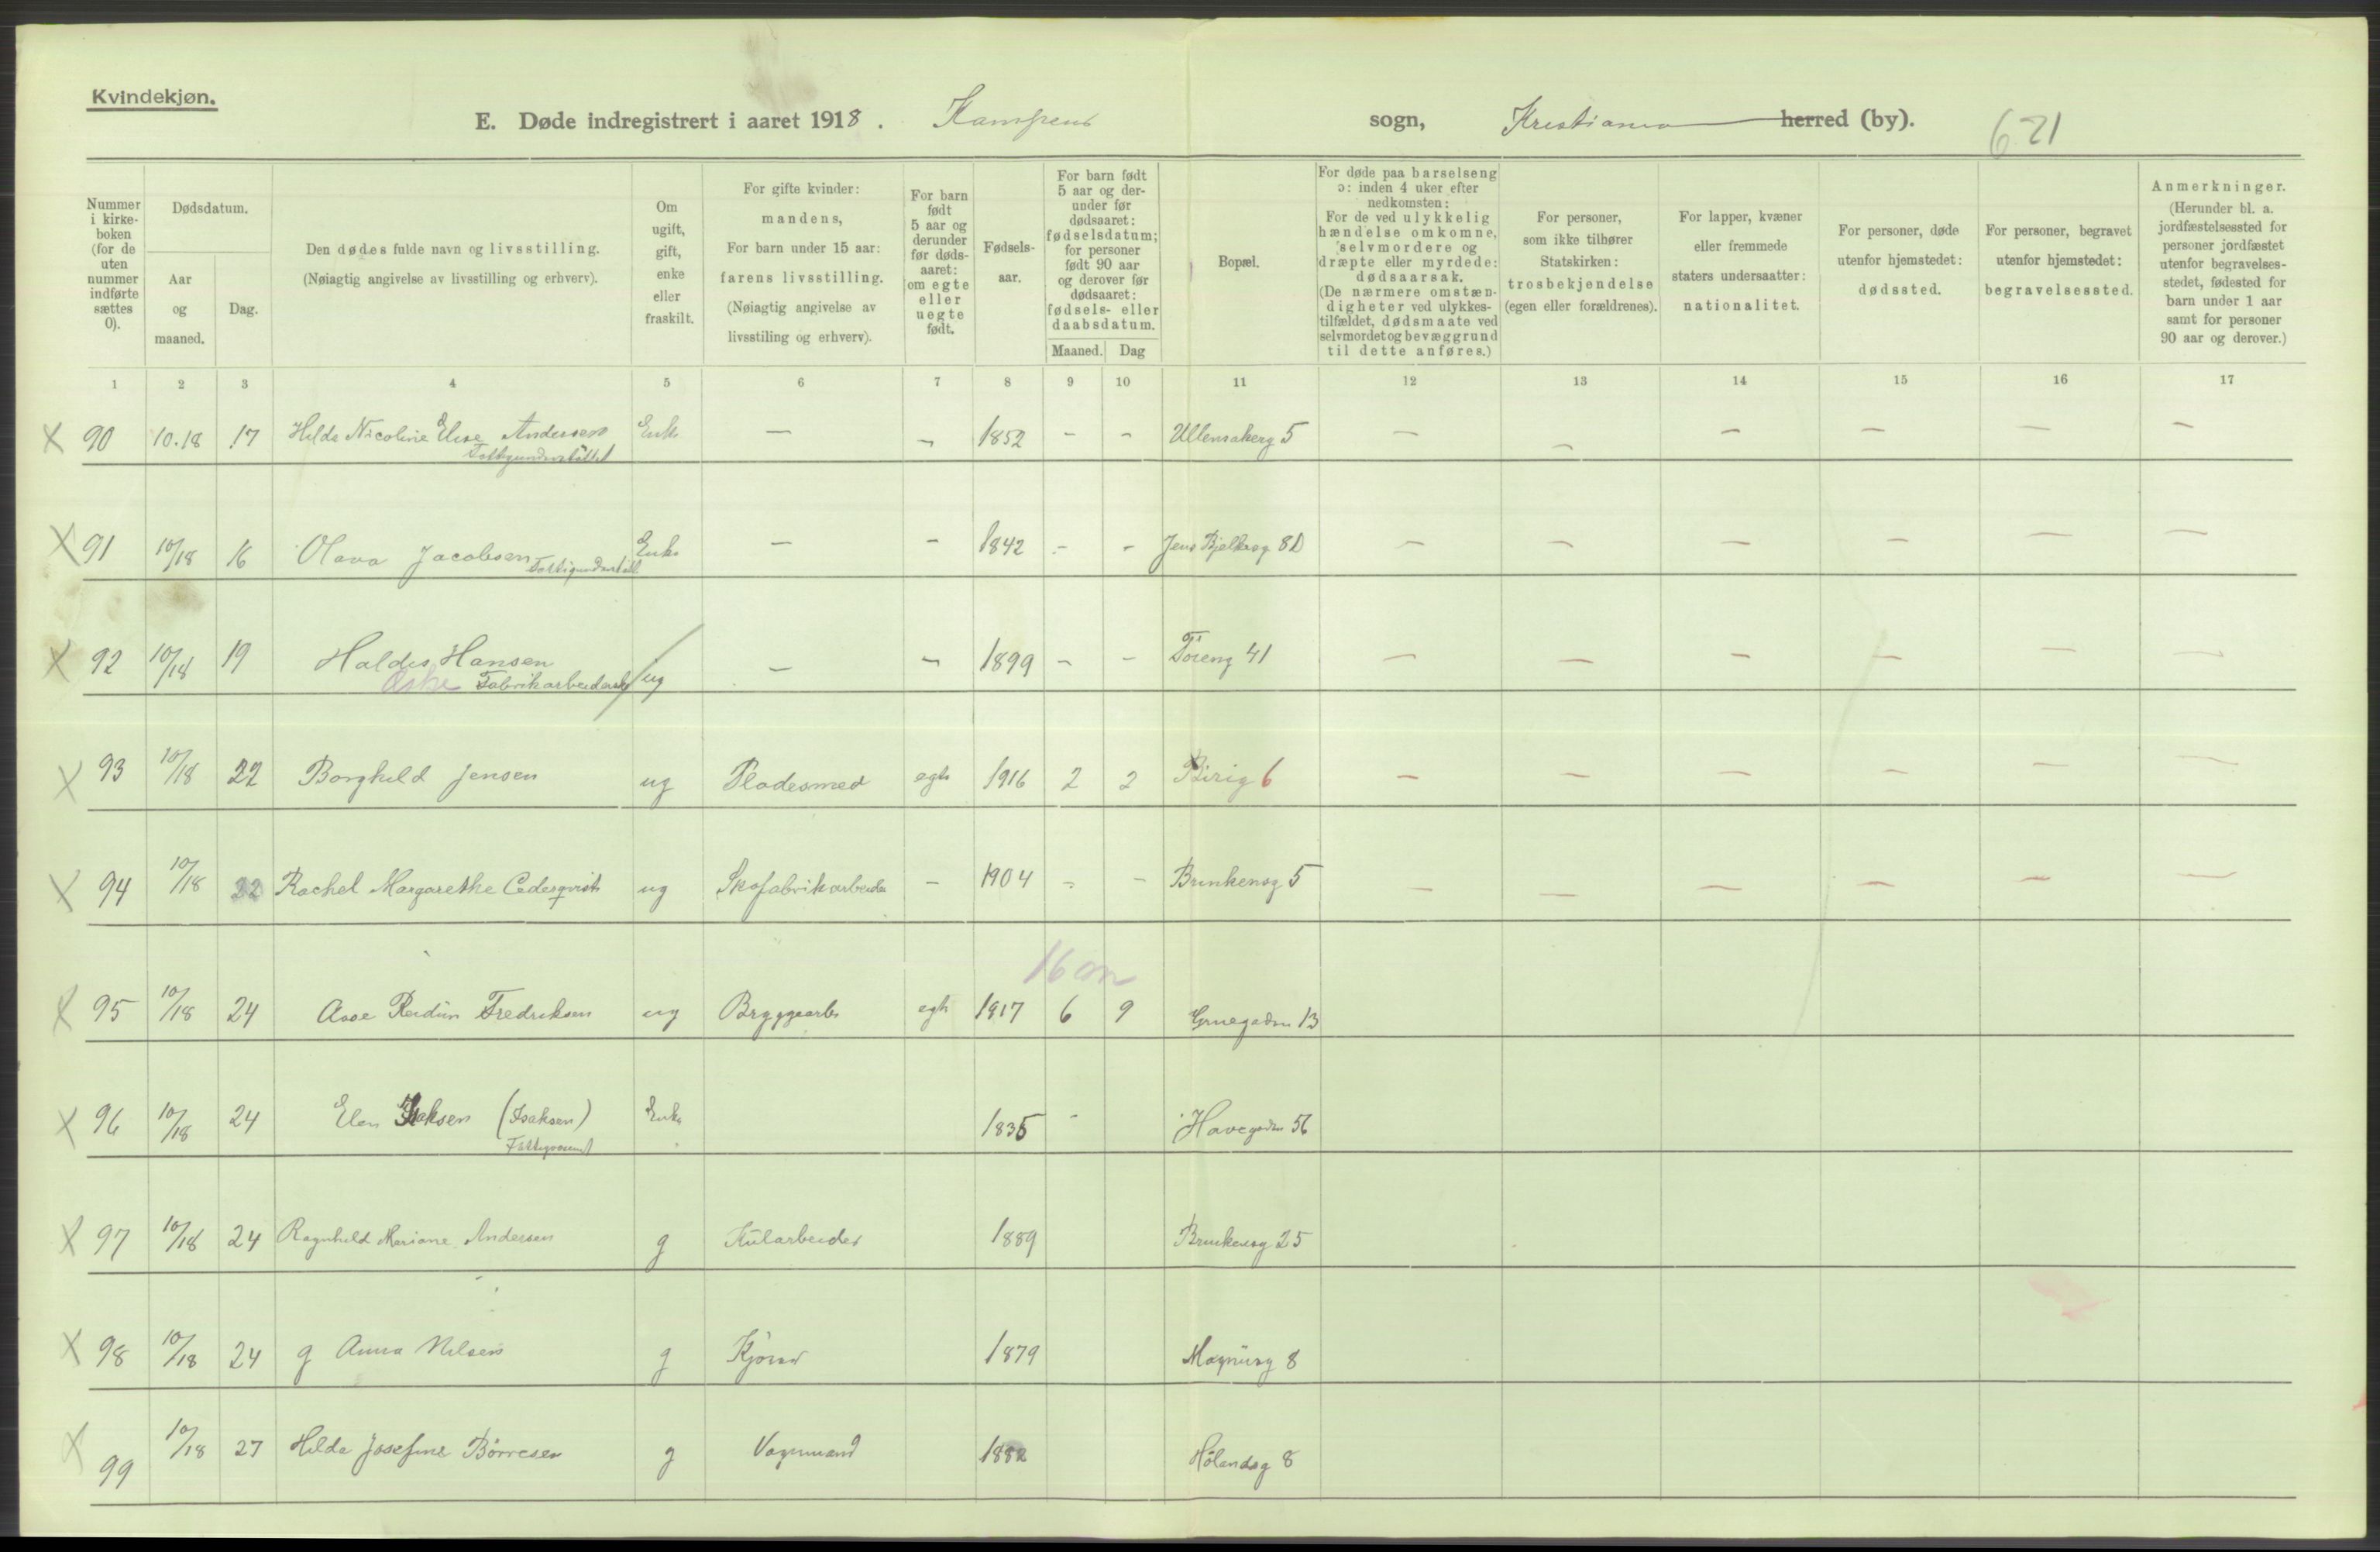 Kvindekjøn.
E. Døde indregistrert i aaret 1918. Kampens sogn, Kristiania herred (by). 621
Nummer i kirkeboken (for de uten nummer indførte sættes 0).
Dødsdatum.
Aar og maaned.
Dag.
Den dødes fulde navn og livsstilling.
(Nøiagtig angivelse av livsstilling og erhverv).
Om ugift, gift, enke eller fraskilt.
For gifte kvinder: mandens,
For barn under 15 aar: farens livsstilling.
(Nøiagtig angivelse av livsstiling og erhverv).
For barn født 5 aar og derunder før dødsaaret: om egte eller uegte født.
Fødselsaar.
For barn født 5 aar og derunder før dødsaaret: fødselsdatum; for personer født 90 aar og derover før dødsaaret: fødsels- eller daabsdatum.
Maaned. Dag
Bopæl.
For døde paa barselseng ɔ: inden 4 uker efter nedkomsten:
For de ved ulykkelig hændelse omkomne, selvmordere og dræpte eller myrdede: dødsaarsak.
(De nærmere omstændigheter ved ulykkestilfældet, dødsmaate ved selvmordet og bevæggrund til dette anføres.)
For personer, som ikke tilhører Statskirken: trosbekjendelse (egen eller forældrenes).
For lapper, kvæner eller fremmede staters undersaatter: nationalitet.
For personer, døde utenfor hjemstedet: dødssted.
For personer, begravet utenfor hjemstedet: begravelsessted.
Anmerkninger.
(Herunder bl. a. jordfæstelsessted for personer jordfæstet utenfor begravelsesstedet, fødested for barn under 1 aar samt for personer 90 aar og derover.)
1 2 3 4 5 6 7 8 9 10 11 12 13 14 15 16 17
X 90 10.18 17 Hilda Nicoline Elise Andersen Enke — — 1852 - - Ullensakerg 5 — — — — — —
Fattigunderstøttet
X 91 10/18 16 Olava Jacobsen Fattigunderstøtt Enke — - 1842 - - Jens Bjelkesg 8D — — — — — —
X 92 10/18 19 Haldis Hansen — - 1899 - - Tøieng 41 — — — — — —
Æske Fabrikarbeiderske ug
X 93 10/18 22 Borghild Jensen ug Pladesmed egte 1916 2 2 Birig 6 — — — — — —
X 94 10/18 22 Rachel Margarethe Cederqvist ug Skofabrikarbeider - 1904 - - Brinkensg 5 — — — — — —
16 m
X 95 10/18 24 Aase Reidun Fredriksen ug Bryggearb egte 1917 6 9 Gruegaden 13
X 96 10/18 24 Elen Isaksen (Isaksen) Enke 1835 - Havegaden 56
X 97 10/18 24 Ragnhild Mariane Andersen g Kularbeider 1889 Brinkensg 25
X 98 10/18 24 g Anna Nilsen g Kjører 1879 Magnusg 8
X 99 10/18 27 Hilda Josefine Børresen g Vognmand 1882 Hølandsg 8